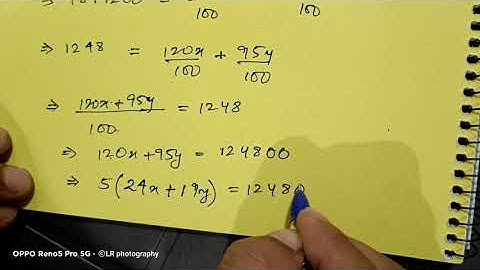 100 100
⇒ 1248 = 120x/100 + 95y/100
⇒ (120x + 95y)/100 = 1248
⇒ 120x + 95y = 124800
⇒ 5(24x + 19y) = 12480
OPPO Reno5 Pro 5G - ©LR photography